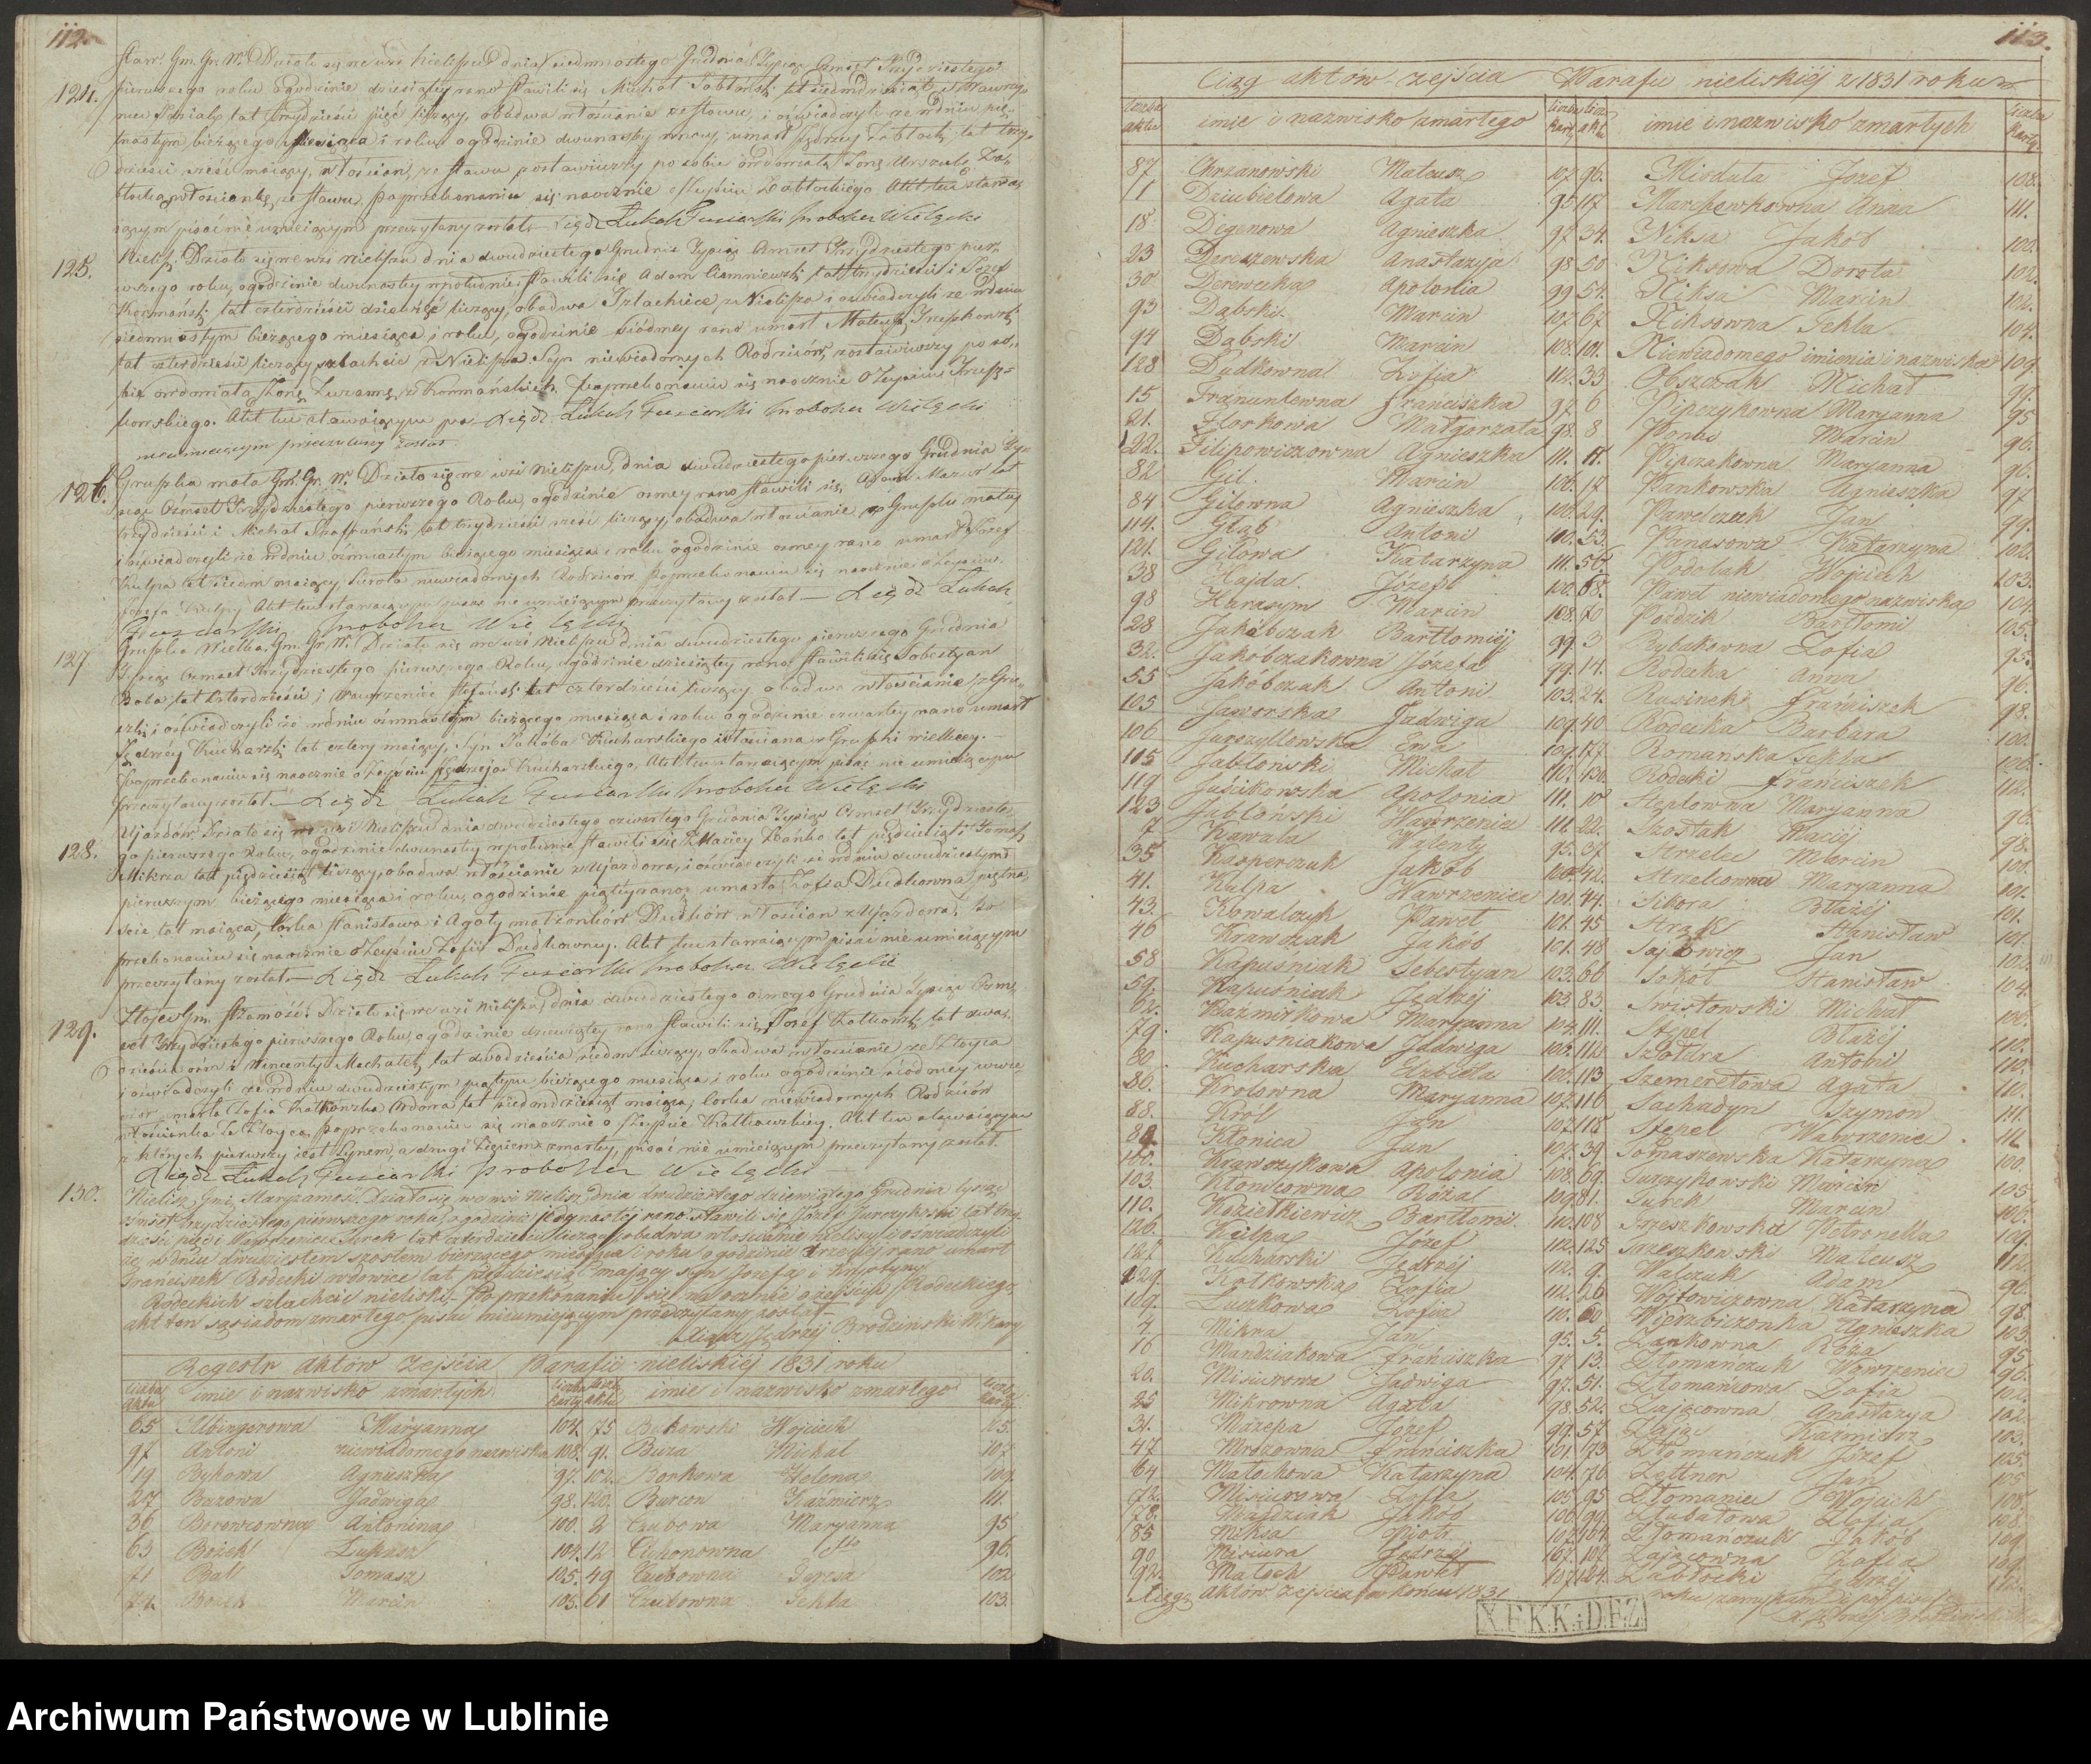 112.
124.
Staw. Gm. Gr. W. Działo się we wsi Nieliszu dnia siedmnastego Grudnia Tysiąc Ośmset Trzydziestego
pierwszego roku o godzinie dziesiątey rano stawili się Michał Jabłoński lat siedmdziesiąt i Wawrzy-
lat trzydzieści pięć liczący, obadwa włościanie ze Stawu, i oświadczyli że w dniu pię-
tnastym bieżącego Miesiąca i roku o godzinie dwunastey w nocy, umarł Jędrzey Zabłocki lat trzy-
dzieści sześć maiący, włościan ze Stawu zostawiwszy po sobie owdowiałą Żonę Urszulę Za-
błocką włościankę ze Stawu. Po przekonaniu się naocznie o Zeyściu Zabłockiego Akt ten stawa-
iącym pisać nie umieiącym przeczytany został. Xiądz Łukasz Proboszcz Wielącki
125.
Nielisz. Działo się we wsi Nieliszu dnia dwudziestego Grudnia Tysiąc Ośmset Trzydziestego pier-
wszego roku, o godzinie dwunastey w południe stawili się Adam Ciemniewski lat trzydzieści i Józef
Kormański lat czterdzieści dziewięć liczący, obadwa Szlachcice z Nielisza i oświadczyli że w dniu
siedmnastym bieżącego miesiąca i roku, o godzinie siódmey rano umarł Mateusz Trzeszkowski
lat czterdzieści liczący szlachcic z Nielisza Syn niewiadomych Rodziców, zostawiwszy po so-
bie owdowiałą Żonę Zuzannę z Kormańskich. Po przekonaniu się naocznie o Zeyściu Trzesz-
kowskiego. Akt ten stawaiącym pi- Xiądz Łukasz Proboszcz Wielącki
nieumieiącym przeczytany został.
126.
Gruszka mała Gm. Gr. W. Działo się we wsi Nieliszu, dnia dwudziestego pierwszego Grudnia Ty-
siąc Ośmset Trzydziestego pierwszego Roku, o godzinie osmey rano stawili się Mazur lat
trzydzieści i Michał lat trzydzieści sześć liczący, obadwa włościanie z Gruszki małey
i oświadczyli że w dniu ośmnastym bieżącego miesiąca i roku o godzinie osmey rano umarł Józef
Kulpa lat siedm maiący, Sierota niewiadomych Rodziców. Po przekonaniu się naocznie o Zeyściu
Józefa Kulpy Akt ten stawaiącym pisać nie umieiącym przeczytany został — Xiądz Łukasz
Proboszcz Wielącki
127
Gruszka Wielka, Gm. Gr. W. Działo się we wsi Nieliszu dnia dwudziestego pierwszego Grudnia
Tysiąc Ośmset Trzydziestego pierwszego Roku, o godzinie dziesiątey rano stawili się Sobestyan
Baba lat czterdzieści i Wawrzeniec lat czterdzieści liczący obadwa włościanie z Gru-
szki i oświadczyli że w dniu ośmnastym bieżącego miesiąca i roku o godzinie czwartey rano umarł
Jędrzey Kucharski lat cztery maiący, Syn Jakóba Kucharskiego włościana z Gruszki wielkiey. —
Po przekonaniu się naocznie o Zeyściu Jędrzeja Kucharskiego, Akt ten stawaiącym pisać nie umieiącym
przeczytany został. — Xiądz Łukasz Proboszcz Wielącki
128.
Ujazdów. Działo się we wsi Nieliszu dnia dwudziestego czwartego Grudnia Tysiąc Ośmset Trzydzieste-
go pierwszego Roku, o godzinie dwunastey w południe stawili się Maciey lat pięćdziesiąt i Tomasz
Mikrza lat pięćdziesiąt liczący, obadwa włościanie z Ujazdowa, i oświadczyli że w dniu dwudziestym
pierwszym bieżącego miesiąca i roku, o godzinie piątey rano umarła Zofia Dudkowna piętna-
ście lat maiąca, Córka Stanisława i Agaty małżonków Dudków włościan z Ujazdowa. Po
przekonaniu się naocznie o Zeyściu Zofii Dudkowney. Akt ten stawaiącym pisać nie umieiącym
przeczytany został. — Xiądz Łukasz Proboszcz Wielącki
129.
Złojec Gm. St. Zamość. Działo się we wsi Nieliszu, dnia dwudziestego osmego Grudnia Tysiąc Ośm-
set Trzydziestego pierwszego Roku, o godzinie dziewiątey rano stawili się, Józef Kotkowski lat dwa-
dzieścia ośm i Wincenty lat dwadzieścia siedm liczący, obadwa włościanie ze Złojca
i oświadczyli że w dniu dwudziestym piątym bieżącego miesiąca i roku o godzinie siódmey w wie-
czór umarła Zofia Kotkowska Wdowa lat siedmdziesiąt maiąca, Corka niewiadomych Rodziców
włościanka ze Złojca. Po przekonaniu się naocznie o Zeyściu Kotkowskiey. Akt ten stawaiącym
z których pierwszy iest Synem, a drugi Zięciem zmarłey, pisać nie umieiącym przeczytany został.
Xiądz Łukasz Proboszcz Wielącki
130.
Nielisz, Gmi. Staryzamość. Działo się we wsi Nielisz dnia dwudziestego dziewiątego Grudnia tysiąc
ośmset trzydziestego pierwszego roku, o godzinie jedynastej rano. Stawili się Józef Jurczykoski lat trzy-
dzieści pięć i Wawrzeniec Turek lat czterdzieści liczący obadwa włościanie nieliscy i oświadczyli
że w dniu dwudziestem szostem bierzącego miesiąca i roku o godzinie trzeciej rano umarł
Franciszek Rodecki wdowiec lat pięćdziesiąt mający syn Jozefa i Krystyny
Rodeckich szlachcic nieliski. Po przekonaniu się na ocznie o zejściu Rodeckiego,
akt ten sąsiadom zmartego pisać nieumiejącym przeczytany został.
Xiądz Jędrzej Brodzinski Wikary
Regestr aktów Zejścia Parafii nieliskiéj 1831 roku
liczba aktu imie i nazwisko zmartych liczba karty liczba aktu imie i nazwisko zmartego liczba karty
65 Albingerowa Maryanna 104. 75 Bukowski Wojciech 105.
97 Antoni niewiadomego nazwiska 108. 91. Buza Michał 107
19 Bykowa Agnieszka 97. 102. Bonkowa Helena 109.
27 Buzowa Jadwiga 98. 120. Burcon Kaźmierz 111.
36 Borowcowna Antonina 100. 2 Czubowa Maryanna 95
63 Bożek Łukasz 104. 12 Cichonowna 96.
71 Bak Tomasz 105. 49 Czubowna Teresa 102
Marcin 105. 61 Czubowna Tekla 103.
113.
Ciąg aktów zejścia Parafii nieliskiéj z 1831 roku
liczba aktu imie i nazwisko zmartego liczba karty liczba aktu imie i nazwisko zmartych liczba karty
87 Chrzanowski Mateusz 107 96. Miodala Jozef 108.
1 Dziubielowa Agata 95 117 Marchewkowna Anna 111.
18 Digenowa Agnieszka 97 34. Niksa Jakób 100.
23 Dereszewska Anastazya 98 50 Niksowa Dorota 102.
30 Derewecka Apolonia 99 54. Niksa Marcin 102.
93 Dąbski Marcin 107 67 Niksowna Tekla 104.
94 Dąbski Marcin 108. 101. Niewiadomego imienia i nazwiska 109.
128 Dudkowna Zofia 112. 33 Olszczak Michał 99.
15 Franciszka 97 6 Pipczykowna Maryanna 95
21. Florkowa Małgorzata 98. 8 Marcin 96.
122. Filipowiczowna Agnieszka 111. 11. Pipczakowna Maryanna 96.
82 Gil Marcin 106. 17 Pankowska Agnieszka 97
84 Gilowna Agnieszka 29. Pawelczuk Jan 99.
114. Głąb Antoni 53. Panasowa Katarzyna 102.
121. Gilowa Katarzyna 111. 56. Podolak Wojciech 103.
38 Hajda Józef 100. 68. Paweł niewiadomego nazwiska 104
98 Harasym Marcin 108. 70 Pozdzik Bartłomi 105.
28 Jakóbczak Bartłomiéj 99. 3 Rybakowna Zofia 95.
32. Jakóbczakowna Józefa 99. 14. Rodecka Anna 96.
55 Jakóbczak Antoni 103. 24. Rusinek Franciszek 98.
105 Jaworska Jadwiga 109. 40 Rodecka Barbara 100.
106 Ewa 109. 127 Romanska Tekla
115 Jabłonski Michał 110. 130. Rodecki Franciszek 112.
119 Juśzikowska Apolonia 111. 10 Steplowna Maryanna 96.
123 Jabłoński Wawrzeniec 111. 22. Szostak Maciéj 98.
7 Kawala Walenty 95. 37 Strzelec Marcin 100.
35 Kasperczuk Jakób 100. 42. Strzelcowna Maryanna 101.
41. Kulpa Wawrzeniec 101. 44. Sikora Błażéj 101.
43. Kowalczyk Paweł 101. 45 Strąk Stanisław 101.
46 Krawczak Jakób 101. 48 Jan 102.
58 Kapuśniak Sebestyan 103. 66 Sokół Stanisław 104.
59. Kapuśniak Jędrzéj 103. 83. Swistowski Michał 106.
62. Kazmirkowa Maryanna 104. 111. Stepel Błażéj 110.
79. Kapuśniakowa Jadwiga 106. 112 Szołdra Antoni 110.
80 Kucharska Elzbieta 106. 113 Szemeretowa Agata 110.
86. Krolowna Maryanna 107. 116 Sachadyn Szymon 111.
88. Król Jan 107. 118 Stepel Wawrzeniec 111.
89 Kłonica Jan 107. 39. Tomaszewska Katarzyna 100.
100. Krawczykowa Apolonia 108. 69. Turczykowski Marcin 105
103. Kłonicowna Róża 109. 81. Turek Marcin 106.
110. Koziełkiewicz Bartłomi. 110. 108 Trzeszkowska Petronella 109.
126. Kulpa Józef 112. 125 Trzeszkowski Mateusz 112.
127 Kucharski Jędrzéj 112. 9. Walczuk Adam 96.
129. Kotkowska Zofia 112. 26 Wojtowiczowna Katarzyna 98.
109. Luczkowa Zofia 110. 60 Wierzbiczonka Agnieszka 103.
4. Mikra Jan 95. 5. Zankowna Róża 95
16 Mandziakowa Franciszka 97 13. Złomanczuk Wawrzeniec 96.
20. Misiurowa Jadwiga 97. 51. Złomańcowa Zofia 102.
25 Mikrowna Agata 98. 52. Zającowna Anastazya 102.
31. Mazepa Józef 99. 57. Zając Kazmierz 103.
47 Mrozowna Franciszka 101. 73 Złomańczuk Józef 105.
64 Matochowa Katarzyna 104. 76. Zettner Jan 105
72. Misiurowa Zofia 105. 95 Złomaniec Wojciech 108.
78. Mandziak Jakób 106. 99. Zofia 108
85 Niksa Piotr 107. 104. Złomańczuk Jakób 109
90 Misiura Jędrzéj 107. 107. Zającowna Zofia 109.
92. Matoch Paweł 107. 124. Zabłocki Jędrzéj 112.
aktów zejścia w końcu 1831 roku zamykam i
X.F.K.K.i.D.F.Z.
Archiwum Państwowe w Lublinie